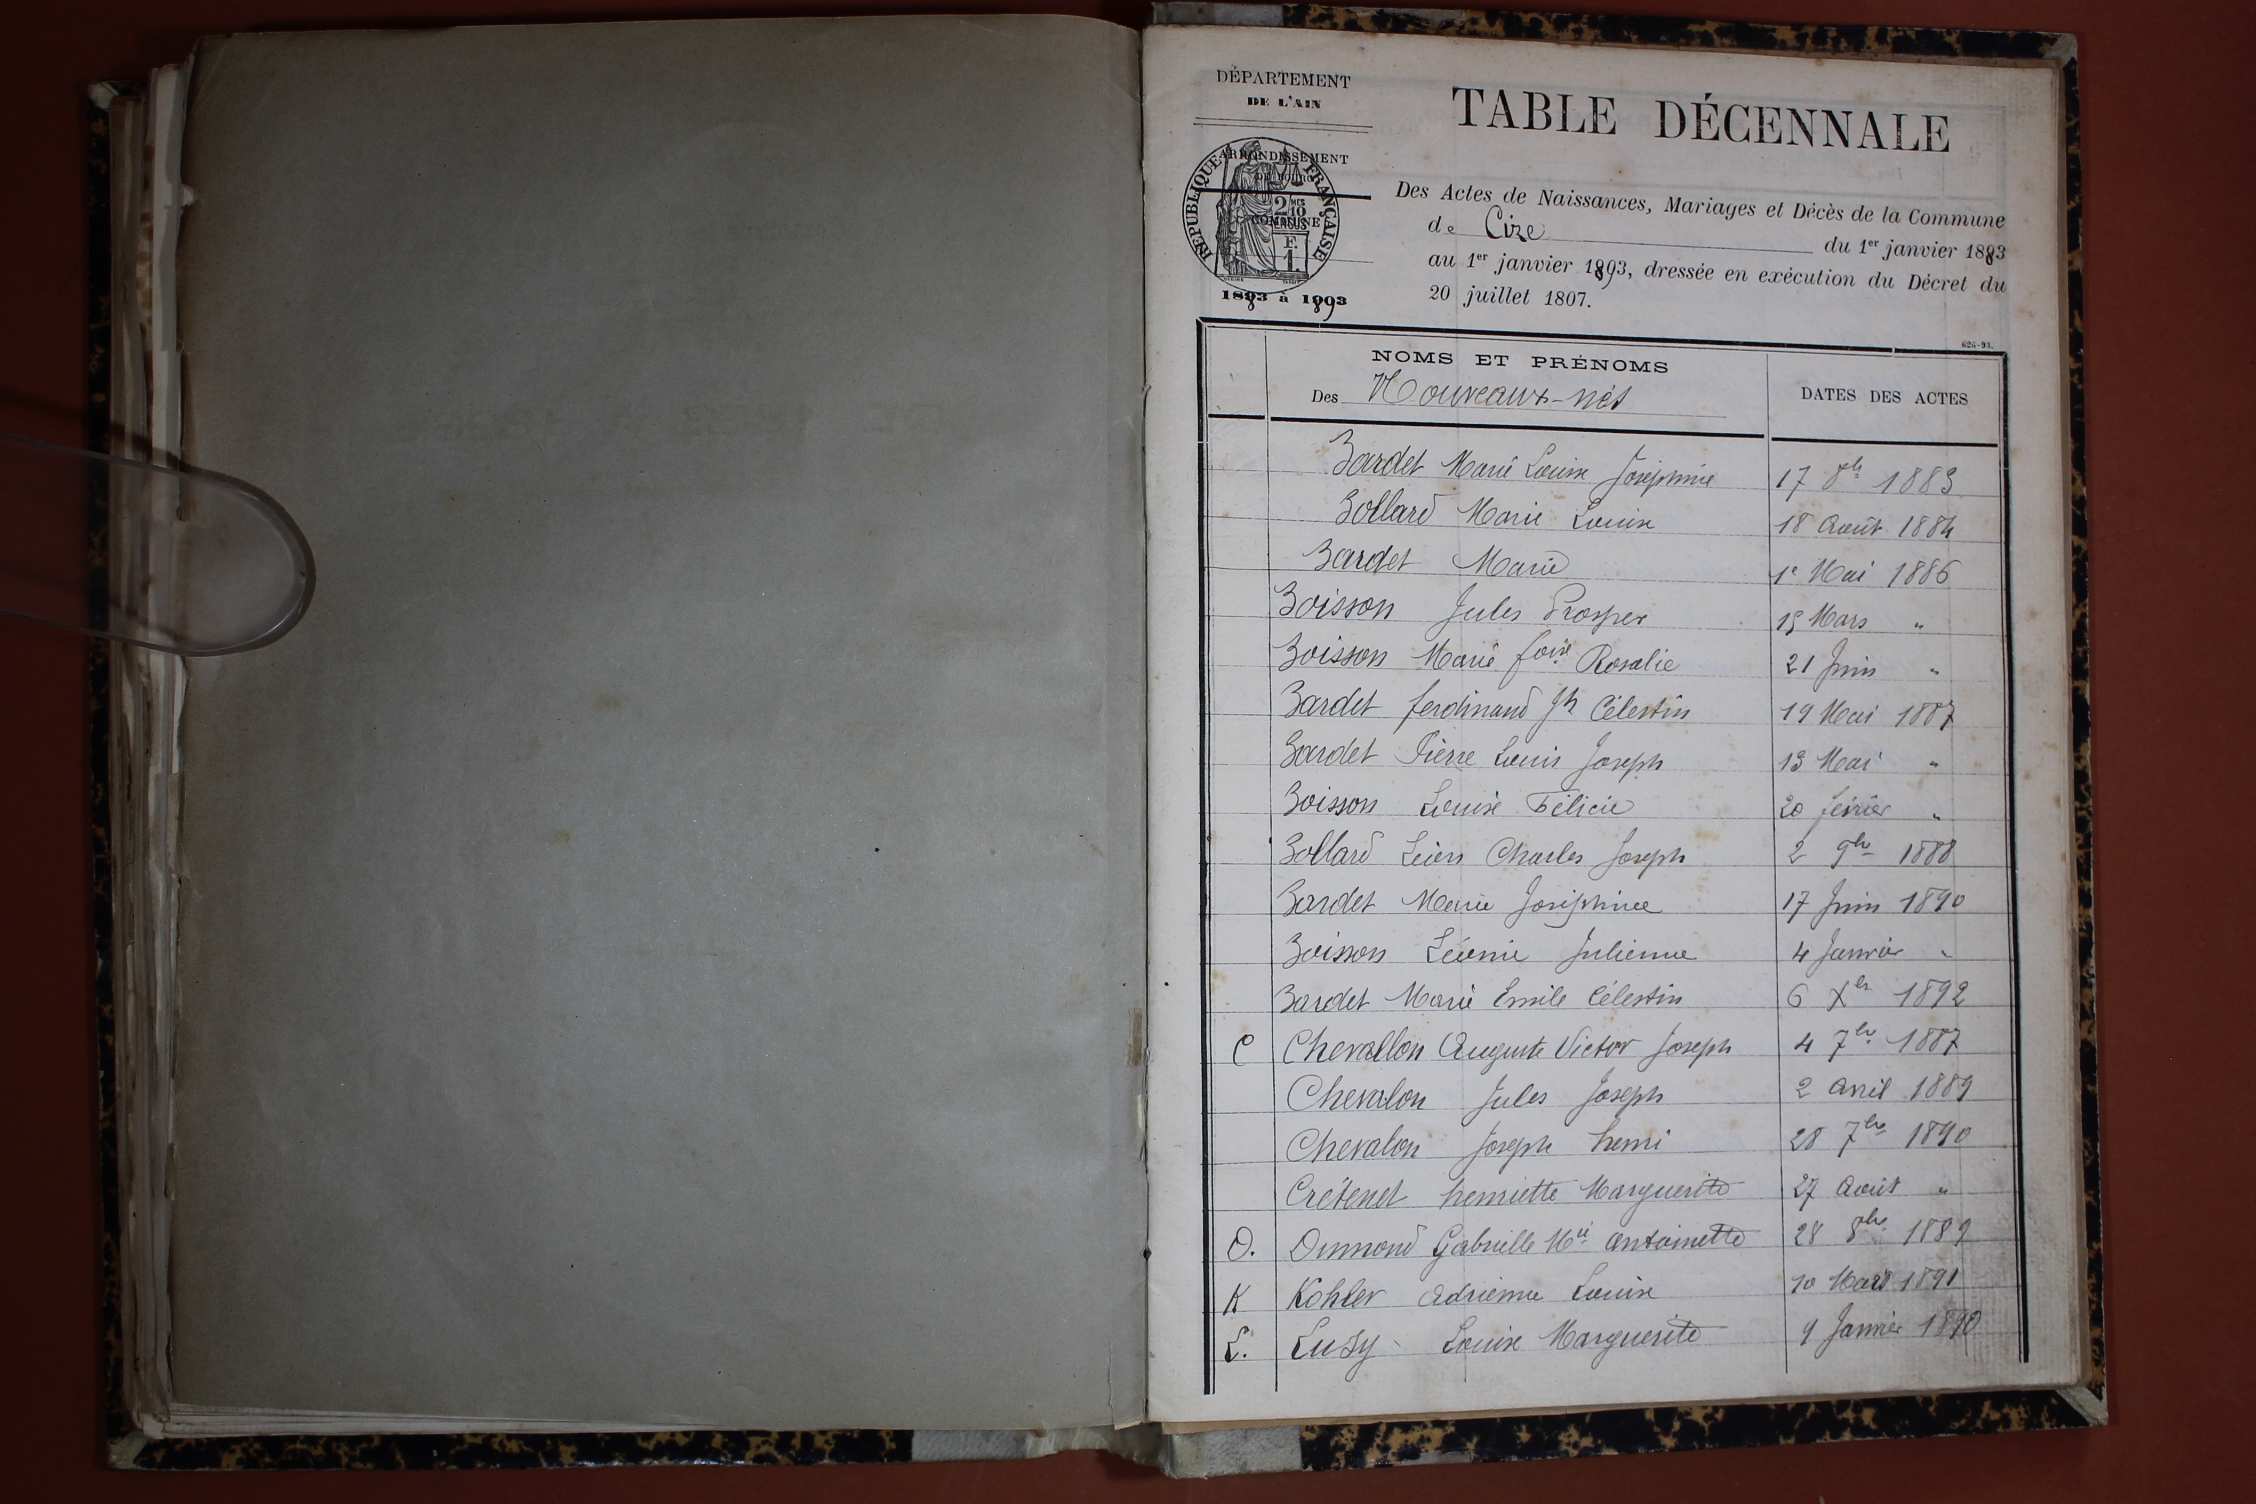 DÉPARTEMENT
DE L'AIN
ARRONDISSEMENT
COMMUNE
RÉPUBLIQUE FRANÇAISE
2/10 MES
EN SUS
F.
1.
1883 à 1893
TABLE DÉCENNALE
Des Actes de Naissances, Mariages et Décès de la Commune
de Cize du 1er janvier 1883
au 1er janvier 1893, dressée en exécution du Décret du
20 juillet 1807.
626-93.
NOMS ET PRÉNOMS
Des Nouveaux-nés
DATES DES ACTES
Bardet Marie Louise Joséphine 17 8bre 1883
Bollard Marie Louise 18 Août 1884
Bardet Marie 1er Mai 1886
Boisson Jules Prosper 15 Mars "
Boisson Marie Rosalie 21 Juin "
Bardet ferdinand Jh Célestin 19 Mai 1887
Bardet Pierre Louis Joseph 13 Mai "
Boisson Louise Félicie 20 février "
Bollard Léon Charles Joseph 2 9bre 1888
Bardet Marie Joséphine 17 Juin 1890
Boisson Léonie Julienne 4 Janvier "
Bardet Marie Emile Célestin 6 Xbre 1892
C Chevallon Auguste Victor Joseph 4 7bre 1887
Chevalon Jules Joseph 2 avril 1889
Chevalon Joseph henri 28 7bre 1890
Crétenet henriette Marguerite 27 Août "
D. Dumond Gabrielle Mie antoinette 28 8bre 1889
K Kohler Adrienne Louise 10 Mars 1891
L. Luzy Louise Marguerite 9 Janvier 1890